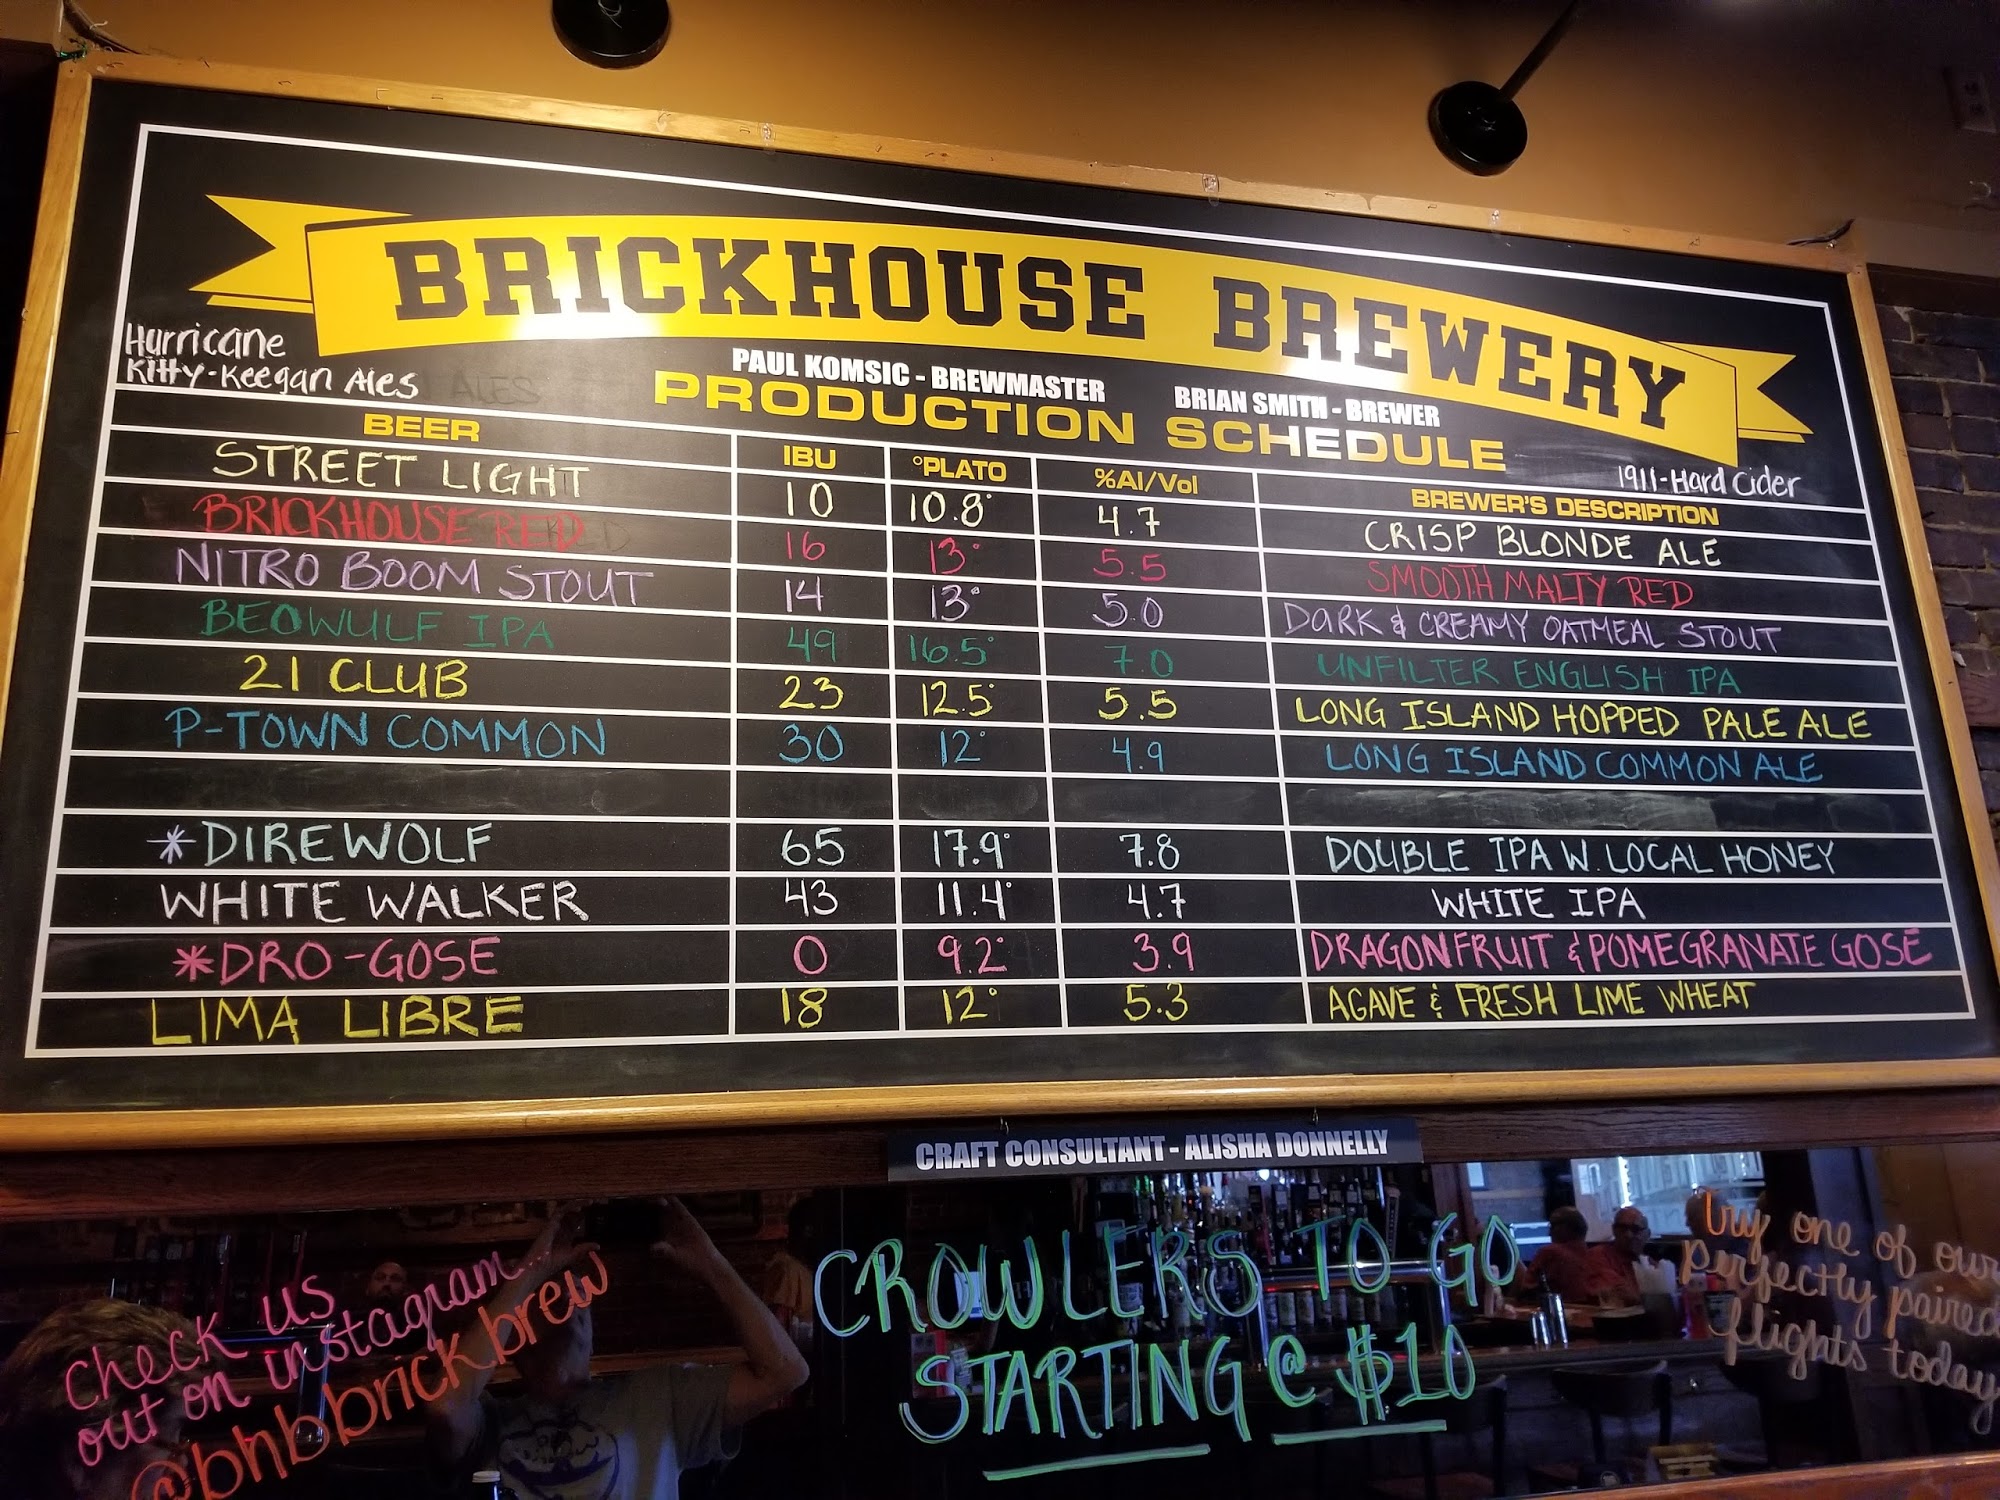 BRICKHOUSE BREWERY
Hurricane
Kitty-Keegan Ales
PAUL KOMSIC - BREWMASTER BRIAN SMITH - BREWER
PRODUCTION SCHEDULE
1911-Hard Cider
BEER IBU °PLATO %Al/Vol BREWER'S DESCRIPTION
STREET LIGHT 10 10.8° 4.7 CRISP BLONDE ALE
BRICKHOUSE RED 16 13° 5.5 SMOOTH MALTY RED
NITRO BOOM STOUT 14 13° 5.0 DARK & CREAMY OATMEAL STOUT
BEOWULF IPA 49 16.5° 7.0 UNFILTER ENGLISH IPA
21 CLUB 23 12.5° 5.5 LONG ISLAND HOPPED PALE ALE
P-TOWN COMMON 30 12° 4.9 LONG ISLAND COMMON ALE
*DIREWOLF 65 17.9° 7.8 DOUBLE IPA W. LOCAL HONEY
WHITE WALKER 43 11.4° 4.7 WHITE IPA
*DRO-GOSE 0 9.2° 3.9 DRAGONFRUIT & POMEGRANATE GOSE
LIMA LIBRE 18 12° 5.3 AGAVE & FRESH LIME WHEAT
CRAFT CONSULTANT - ALISHA DONNELLY
check us
out on instagram
@bhbbrickbrew
CROWLERS TO GO
STARTING @ $10
try one of our
perfectly paired
flights today